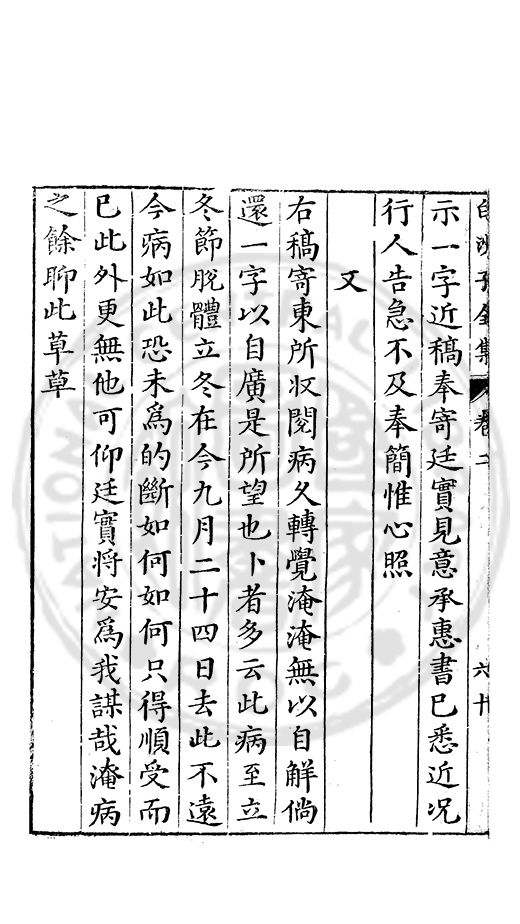 白沙子全集 卷二 六十
示一字近稿奉寄廷實見意承惠書已悉近况
行人告急不及奉簡惟心照
又
右稿寄東所收閱病久轉覺淹淹無以自解倘
還一字以自廣是所望也卜者多云此病至立
冬節脫體立冬在今九月二十四日去此不遠
今病如此恐未爲的斷如何如何只得順受而
已此外更無他可仰廷實將安爲我謀哉淹病
之餘聊此草草